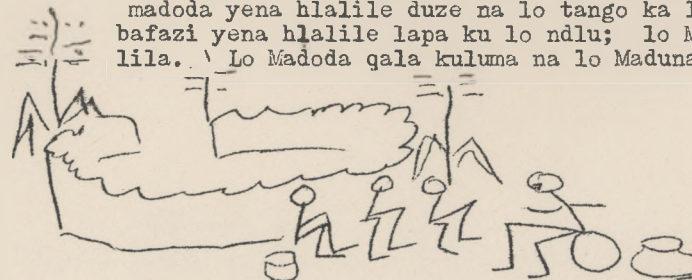 madoda yena hlalile duze na lo tango ka l
bafazi yena hlalile lapa ku lo ndlu; lo M
lila. Lo Madoda qala kuluma na lo Maduna